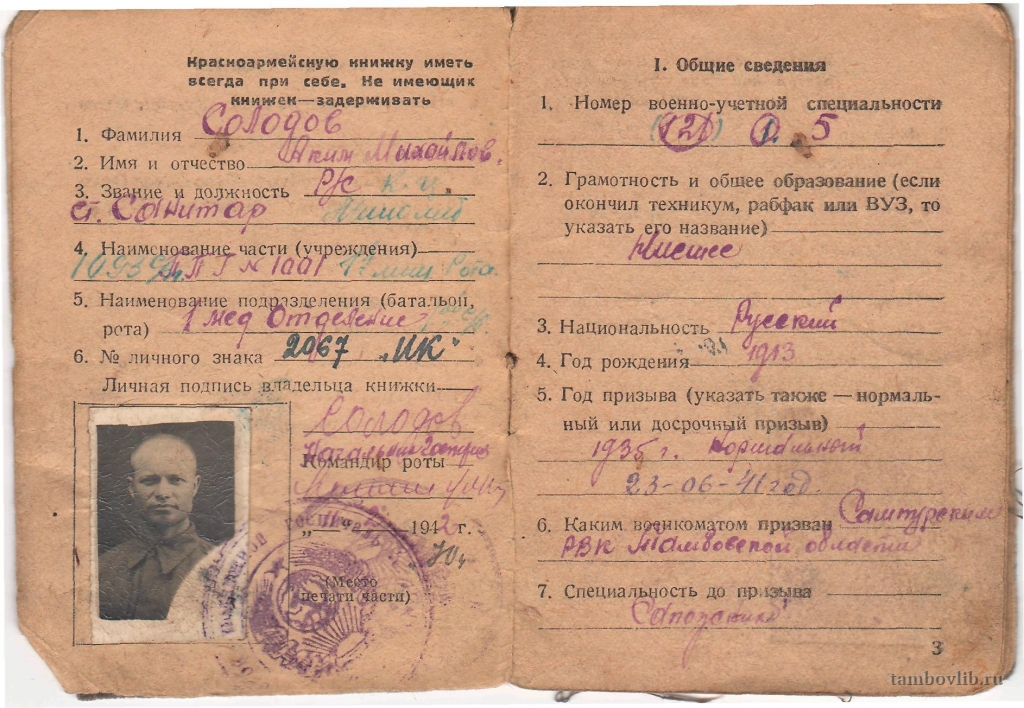 Красноармейскую книжку иметь
всегда при себе. Не имеющих
книжек—задерживать
1. Фамилия Солодов
2. Имя и отчество Аким Михайлов.
3. Звание и должность р/с
ст. Санитар
4. Наименование части (учреждения)
ППГ № 1001 рота
5. Наименование подразделения (батальон,
рота) 1 мед Отделение
6. № личного знака 2967 „ИК"
Личная подпись владельца книжки
Солодов
Начальник Госпиталя
Командир роты
„ 194 г.
(Место
печати части)
I. Общие сведения
1. Номер военно-учетной специальности
121 5
2. Грамотность и общее образование (если
окончил техникум, рабфак или ВУЗ, то
указать его название)
Низшее
3. Национальность Русский
4. Год рождения 1913
5. Год призыва (указать также — нормаль-
ный или досрочный призыв)
1935 г. нормальный
23-06-41 год.
6. Каким военкоматом призван Сампурским
РВК Тамбовской области
7. Специальность до призыва
Сапожник
3
tambovlib.ru